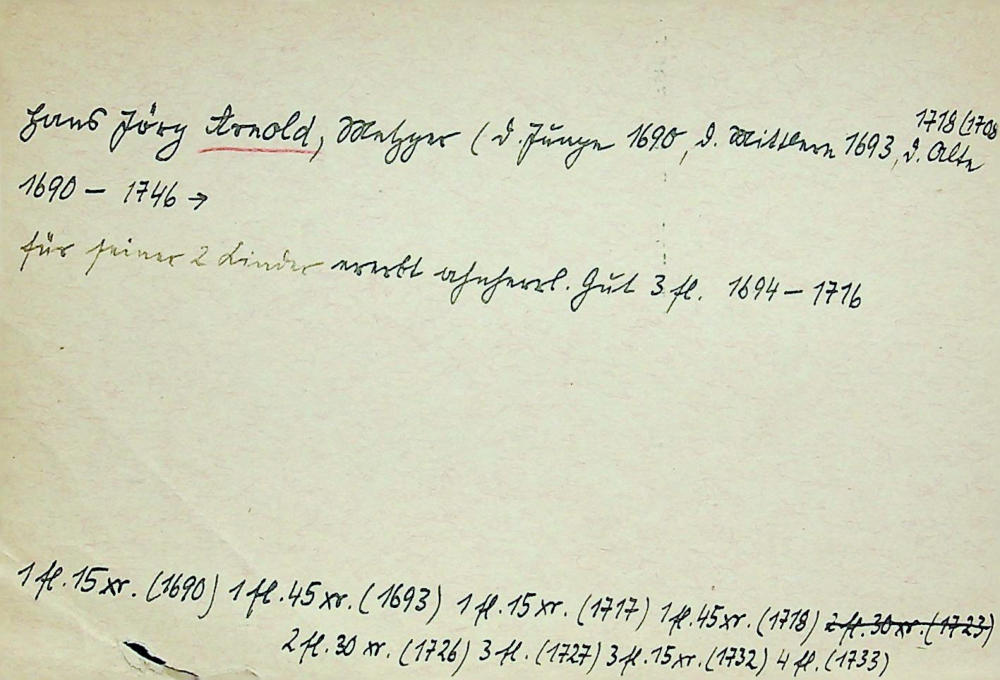 1718 (1708
Hans Jörg Arnold, Metzger (d. Junge 1690, d. Mittlere 1693, d. Alte
1690 – 1746 →
für seiner 2 Kinder ererbt ahnherrl. Gut 3 fl. 1694 – 1716
1 fl. 15 xr. (1690) 1 fl. 45 xr. (1693) 1 fl. 15 xr. (1717) 1 fl. 45 xr. (1718) 2 fl. 30 xr. (1723)
2 fl. 30 xr. (1726) 3 fl. (1727) 3 fl. 15 xr. (1732) 4 fl. (1733)